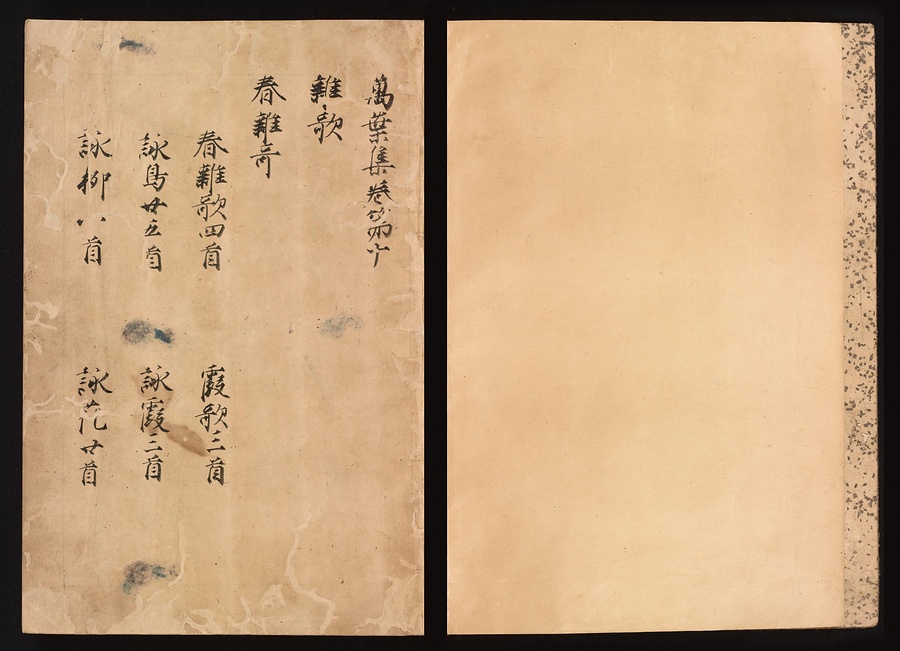 萬葉集巻第十
雜歌
春雜哥
春雜歌四首
霞歌三首
詠鳥廿五首
詠霞三首
詠柳八首
詠花廿首